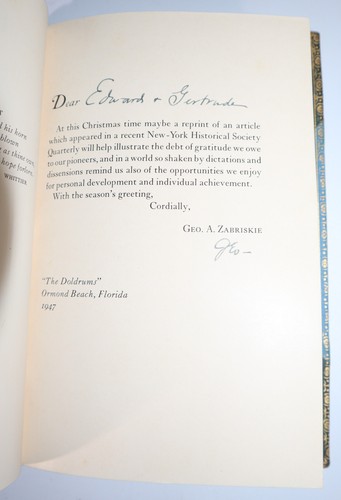 Dear Edward & Gertrude
At this Christmas time maybe a reprint of an article
which appeared in a recent New-York Historical Society
Quarterly will help illustrate the debt of gratitude we owe
to our pioneers, and in a world so shaken by dictations and
dissensions remind us also of the opportunities we enjoy
for personal development and individual achievement.
With the season's greeting,
Cordially,
Geo. A. Zabriskie
Geo—
"The Doldrums"
Ormond Beach, Florida
1947
his horn
blown
as thine own
hope forlorn
WHITTIER